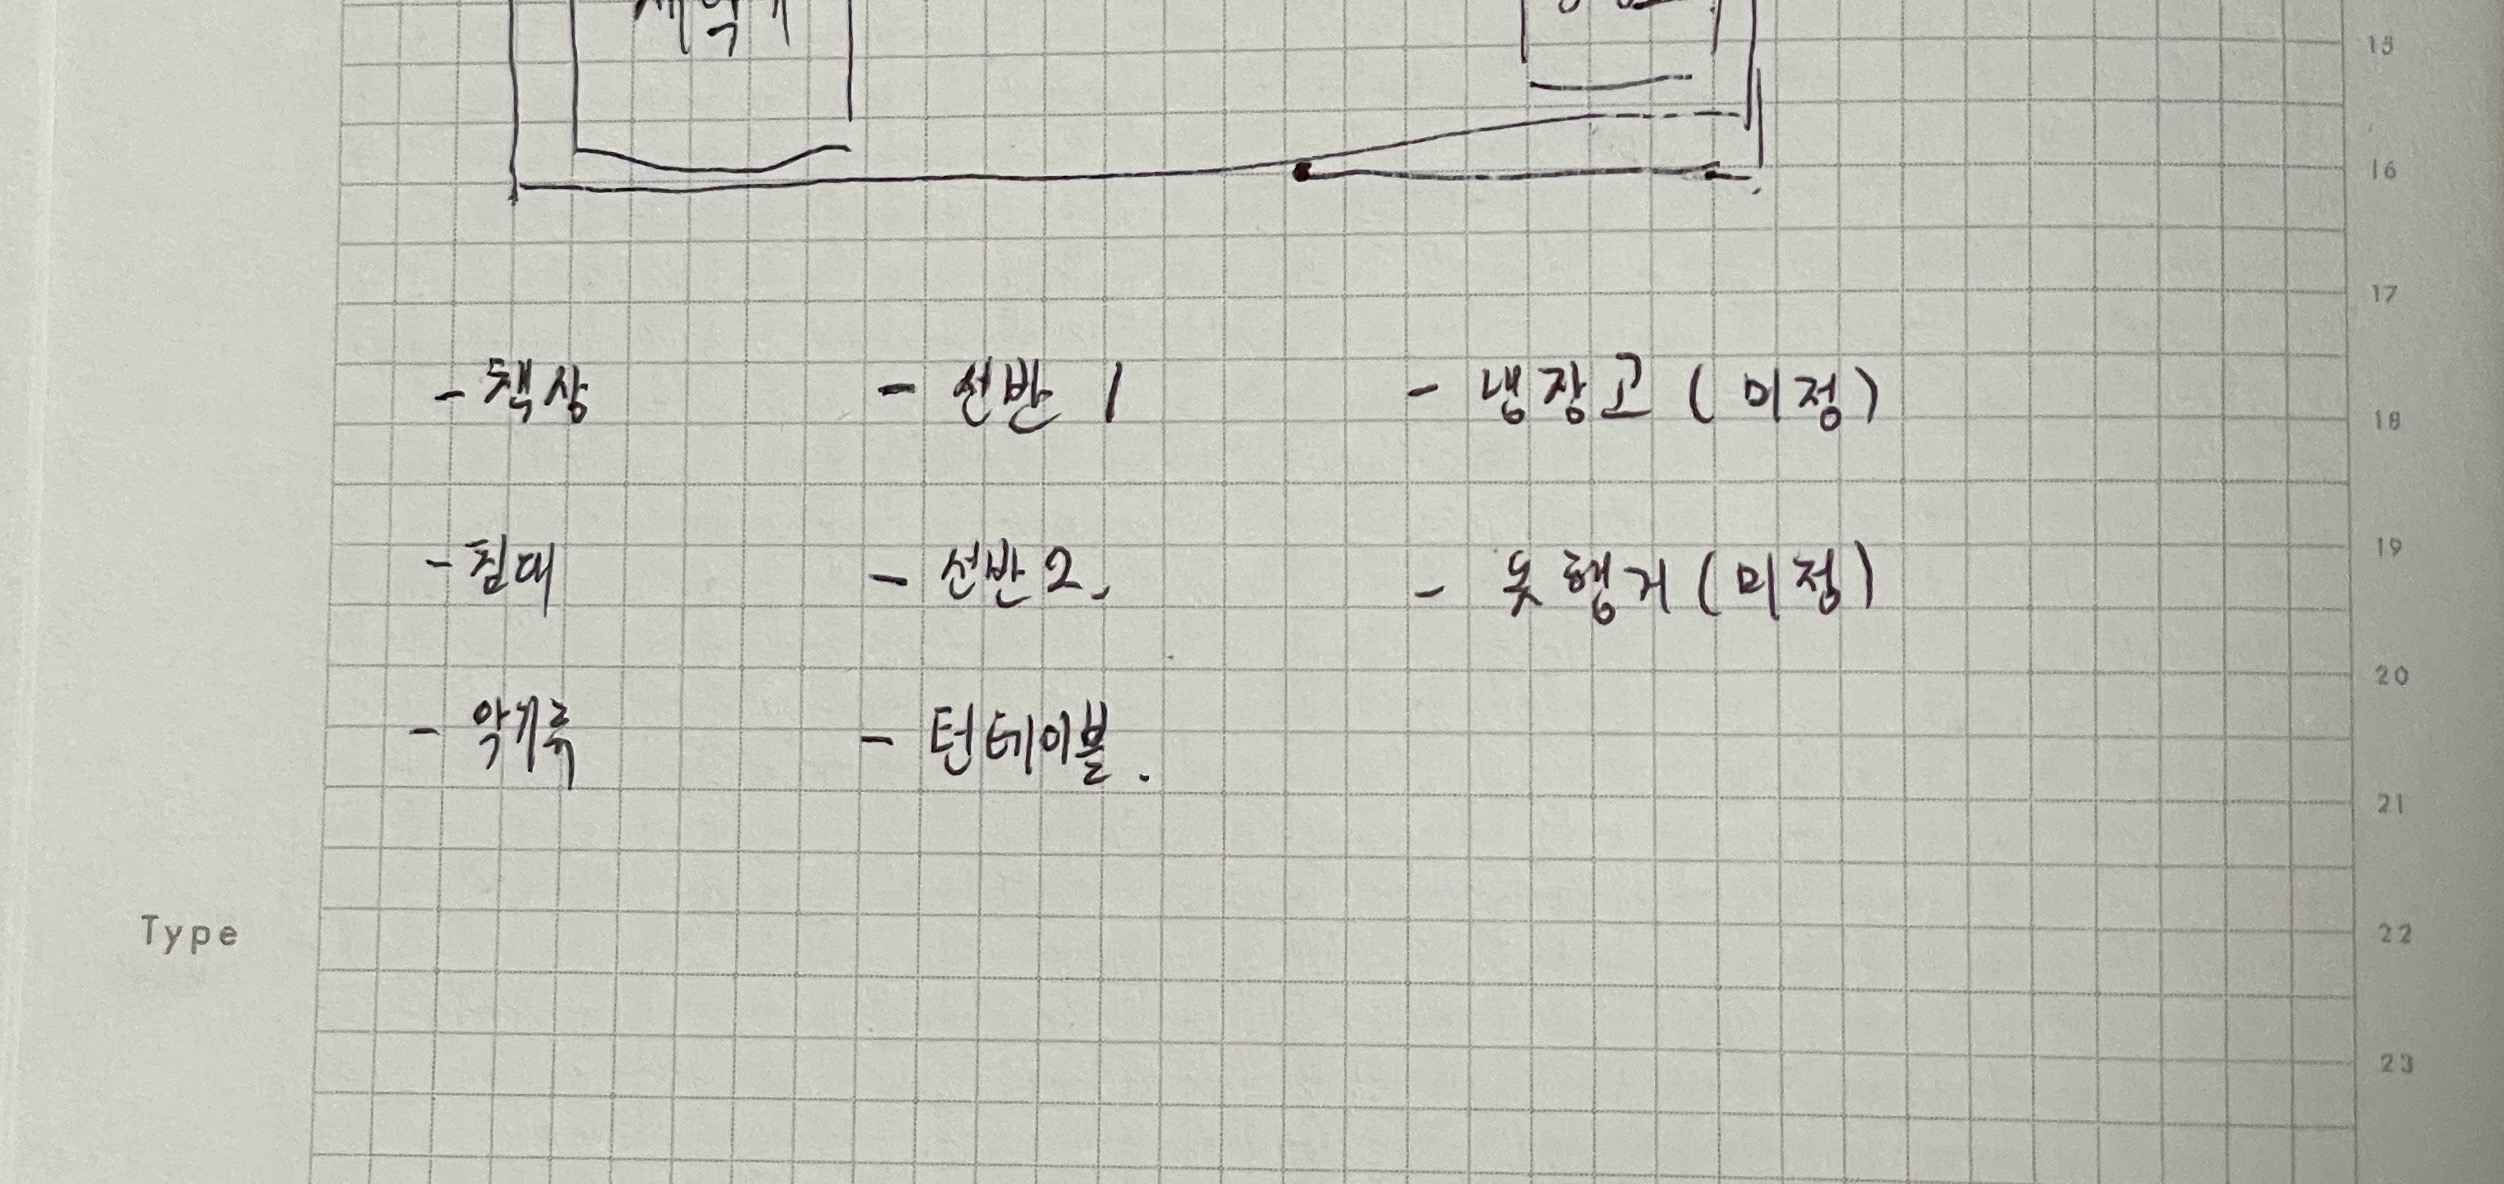 15
16
17
- 책상 - 선반 1 - 냉장고 (미정)
18
- 침대 - 선반 2. - 옷행거 (미정)
19
20
- 악기류 - 턴테이블.
21
Type
22
23